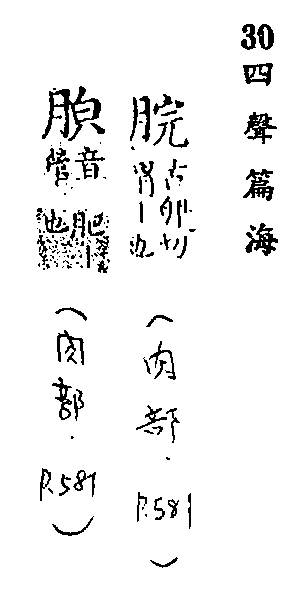 30 四聲篇海
脘 古卵切 胃丨也 (肉部.P.581)
音 肥丨也 (肉部.P.581)